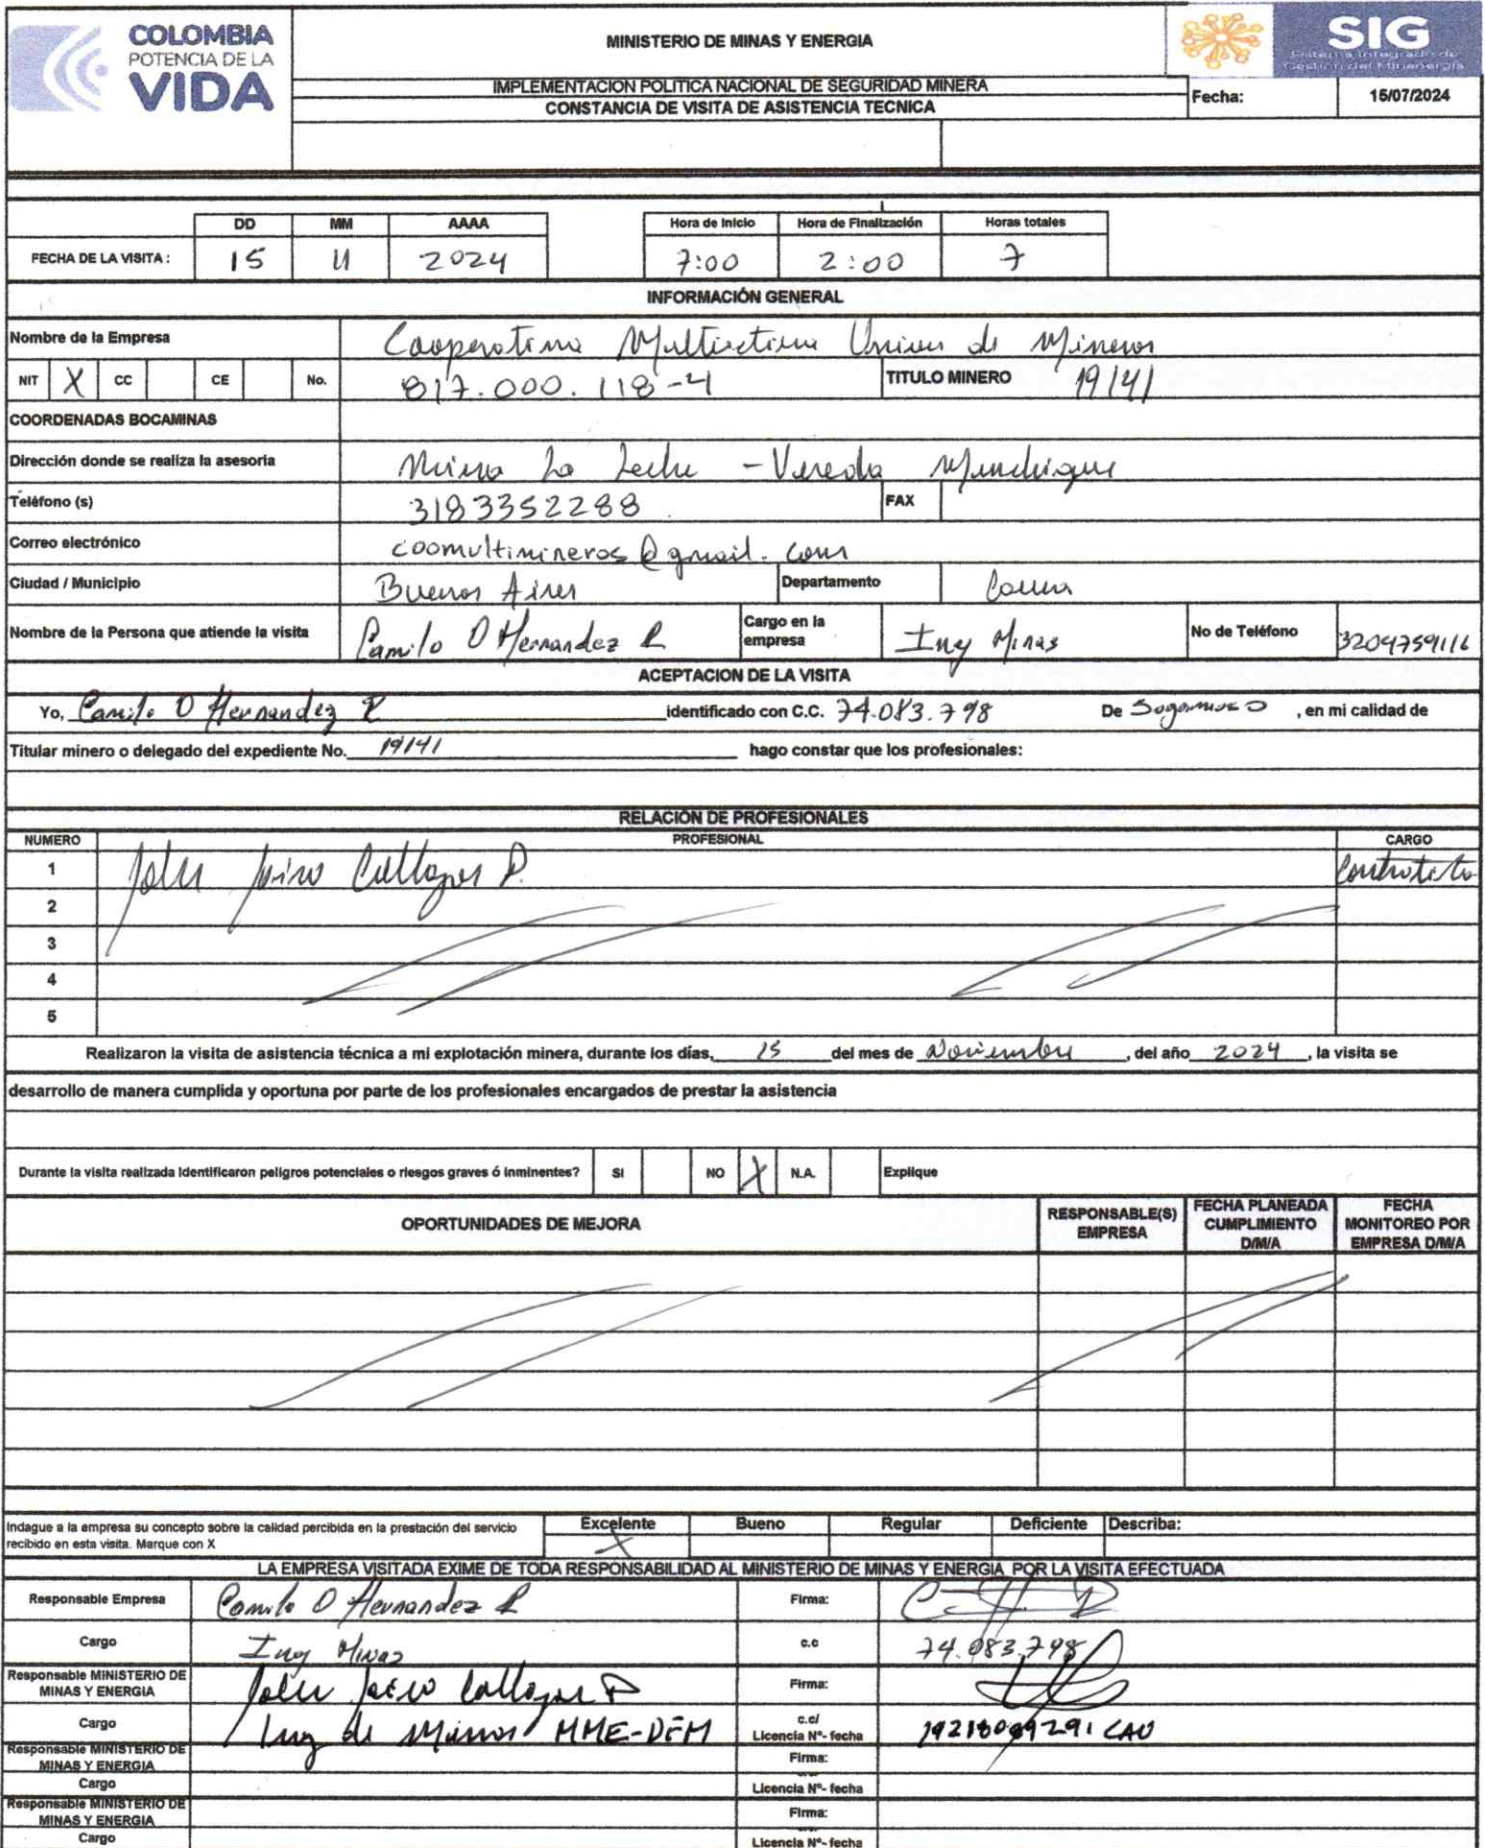 COLOMBIA
POTENCIA DE LA
VIDA
MINISTERIO DE MINAS Y ENERGIA
SIG
Sistema Integrado de
Gestión del Minenergía
IMPLEMENTACION POLITICA NACIONAL DE SEGURIDAD MINERA
CONSTANCIA DE VISITA DE ASISTENCIA TECNICA
Fecha: 15/07/2024
DD MM AAAA Hora de Inicio Hora de Finalización Horas totales
FECHA DE LA VISITA : 15 11 2024 7:00 2:00 7
INFORMACIÓN GENERAL
Nombre de la Empresa Cooperativa Multiactiva Unión de Mineros
NIT X CC CE No. 817.000.118-4 TITULO MINERO 19141
COORDENADAS BOCAMINAS
Dirección donde se realiza la asesoria Mina La Leche - Vereda Munchique
Teléfono (s) 3183352288 FAX
Correo electrónico coomultimineros@gmail.com
Ciudad / Municipio Buenos Aires Departamento Cauca
Nombre de la Persona que atiende la visita Camilo O Hernandez R Cargo en la empresa Ing Minas No de Teléfono 3204759116
ACEPTACION DE LA VISITA
Yo, Camilo O Hernandez R identificado con C.C. 74.083.798 De Sogamoso , en mi calidad de
Titular minero o delegado del expediente No. 19141 hago constar que los profesionales:
RELACIÓN DE PROFESIONALES
NUMERO PROFESIONAL CARGO
1 John Jairo Collazos P. Contratista
2
3
4
5
Realizaron la visita de asistencia técnica a mi explotación minera, durante los días, 15 del mes de Noviembre , del año 2024 , la visita se
desarrollo de manera cumplida y oportuna por parte de los profesionales encargados de prestar la asistencia
Durante la visita realizada identificaron peligros potenciales o riesgos graves ó inminentes? SI NO X N.A. Explique
OPORTUNIDADES DE MEJORA RESPONSABLE(S) EMPRESA FECHA PLANEADA CUMPLIMIENTO D/M/A FECHA MONITOREO POR EMPRESA D/M/A
Indague a la empresa su concepto sobre la calidad percibida en la prestación del servicio Excelente Bueno Regular Deficiente Describa:
recibido en esta visita. Marque con X X
LA EMPRESA VISITADA EXIME DE TODA RESPONSABILIDAD AL MINISTERIO DE MINAS Y ENERGIA POR LA VISITA EFECTUADA
Responsable Empresa Camilo O Hernandez R Firma:
Cargo Ing Minas c.c 74.083.798
Responsable MINISTERIO DE MINAS Y ENERGIA John Jairo Collazos P Firma:
Cargo Ing de Minas MME-DFM c.c/ Licencia Nº- fecha CAU
Responsable MINISTERIO DE MINAS Y ENERGIA Firma:
Cargo Licencia Nº- fecha
Responsable MINISTERIO DE MINAS Y ENERGIA Firma:
Cargo Licencia Nº- fecha